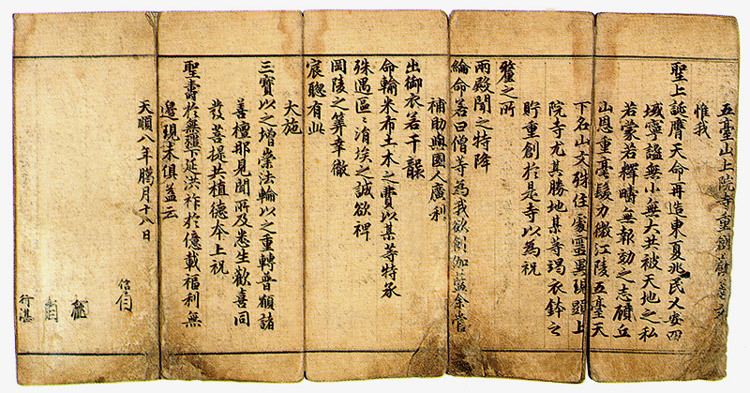 五臺山上院寺重創勸善文
惟我
聖上誕膺天命再造東夏兆民乂安四
域寧謐無小無大共被天地之私
若蒙若釋疇無報効之志顧丘
山恩重毫髮力微江陵五臺天
下名山文殊住處靈異現頭上
院寺尤其勝地某等竭衣鉢之
貯重創於是寺以為祝
釐之所
兩殿聞之特降
綸命若曰僧等為我欲創伽藍余當
補助與國人廣利
出御衣若干襲
命輸米布土木之費以某等特承
殊遇區〻涓埃之誠欲裨
岡陵之筭幸徹
宸聰有此
大施
三寳以之增崇法輪以之重轉普願諸
善檀那見聞所及悉生歡喜同
發菩提共植德本上祝
聖壽於無疆下延洪祚於億載福利無
邊現未俱益云
天順八年臘月十八日
信
行湛